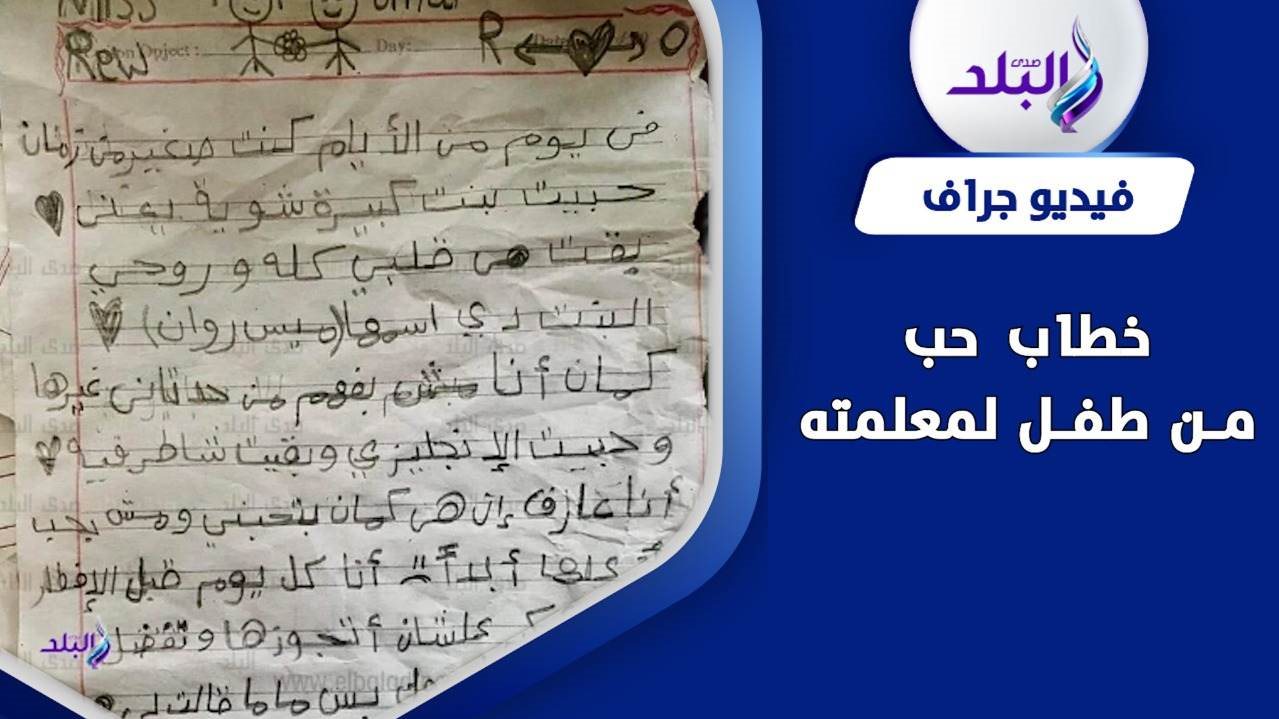 Miss
omar
Rew
Day:
R O
فى يوم من الأيام كنت صغير من زمان
حبيت بنت كبيرة شوية يعنى
بقت هى قلبي كله و روحي
البنت دي اسمها (ميس روان)
كمان أنا مش بفهم من حد تانى غيرها
و حبيت الإنجليزي وبقيت شاطر فيه
أنا عارف إن هى كمان بتحبني و مش بحب
أبدأ أنا كل يوم قبل الإفطار
علشان أتجوزها و تفضل
بس ماما قالت لى
صدى البلد
فيديو جراف
خطاب حب
من طفل لمعلمته
البلد